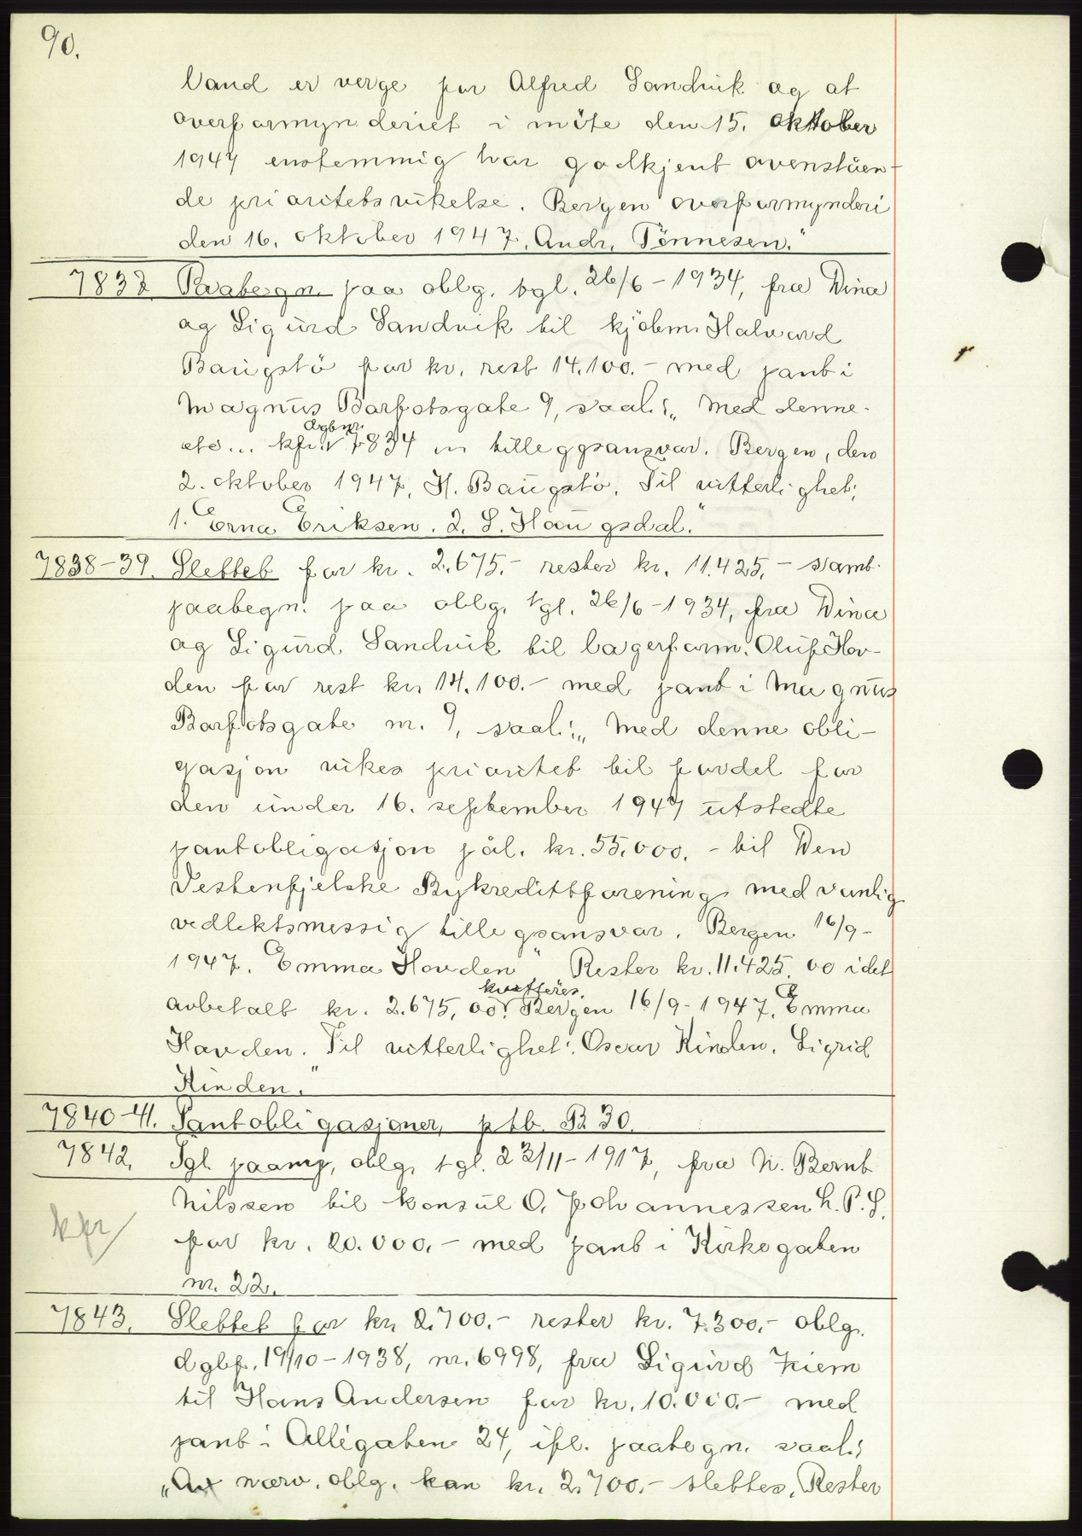 90.
Vand er verge for Alfred Sandvik og at
overformynderiet i möte den 15. oktober
1947 enstemmig har godkjent ovenståen-
de prioritetsvikelse. Bergen overformynderi
den 16. oktober 1947. Andr. Tønnesen."
7832 Paabegn. paa oblg. tgl. 26/6-1934, fra Dina
og Sigurd Sandvik til kjöbm. Halvard
Baugstö for kr. rest 14.100.- med pant i
Magnus Barfotsgate 9, saal: „Med denne-
etc... kfr. dagbnr. 7834 m tilleggsansvar. Bergen, den
2. oktober 1947. H. Baugstö. Til vitterlighet:
1. Erna Eriksen. 2. S. Haugsdal."
7838-39. Slettet for kr. 2.675.- rester kr. 11.425.- samt.
paabegn. paa oblg. tgl. 26/6-1934, fra Dina
og Sigurd Sandvik til lagerform. Oluf Hov-
den for rest kr. 14.100.- med pant i Magnus
Barfotsgate nr. 9, saal: „Med denne obli-
gasjon vikes prioritet til fordel for
den under 16. september 1947 utstedte
pantobligasjon pål. kr. 55.000.- til Den
Vestenfjelske Bykredittforening med vanlig
vedtektsmessig tilleggsansvar. Bergen 16/9-
1947. Emma Hovden" Rester kr. 11.425.00 idet
avbetalt kr. 2.675,00 kvitteres. Bergen 16/9-1947. Emma
Hovden. Til vitterlighet: Oscar Kinden. Sigrid
Kinden."
7840-41. Pantobligasjoner, ptb. B 30.
7842. Tgl. paany, oblg. tgl. 23/11-1917, fra N. Bernt
Nilssen til konsul O. Johannessen L. P. S.
kfr for kr. 20.000.- med pant i Kirkegaten
nr. 22.
7843. Slettet for kr. 2.700.- rester kr. 7.300.- oblg.
dgbf. 19/10-1938, nr. 6998, fra Sigurd Ziem
til Hans Andersen for kr. 10.000.- med
pant i Allégaten 24, ifl. paategn. saal:
„Av nærv. oblg. kan kr. 2.700.- slettes. Rester